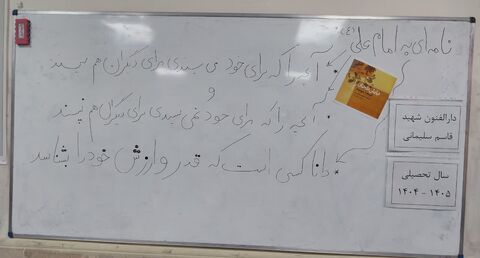 نامه ای به امام علی (ع)
آنچه را که برای خود می پسندی برای دیگران هم بپسند
و
آنچه را که برای خود نمی پسندی برای دیگران هم نپسند
دانا کسی است که قدر و ارزش خود را بشناسد
دارالفنون شهید
قاسم سلیمانی
سال تحصیلی
۱۴۰۴ - ۱۴۰۵